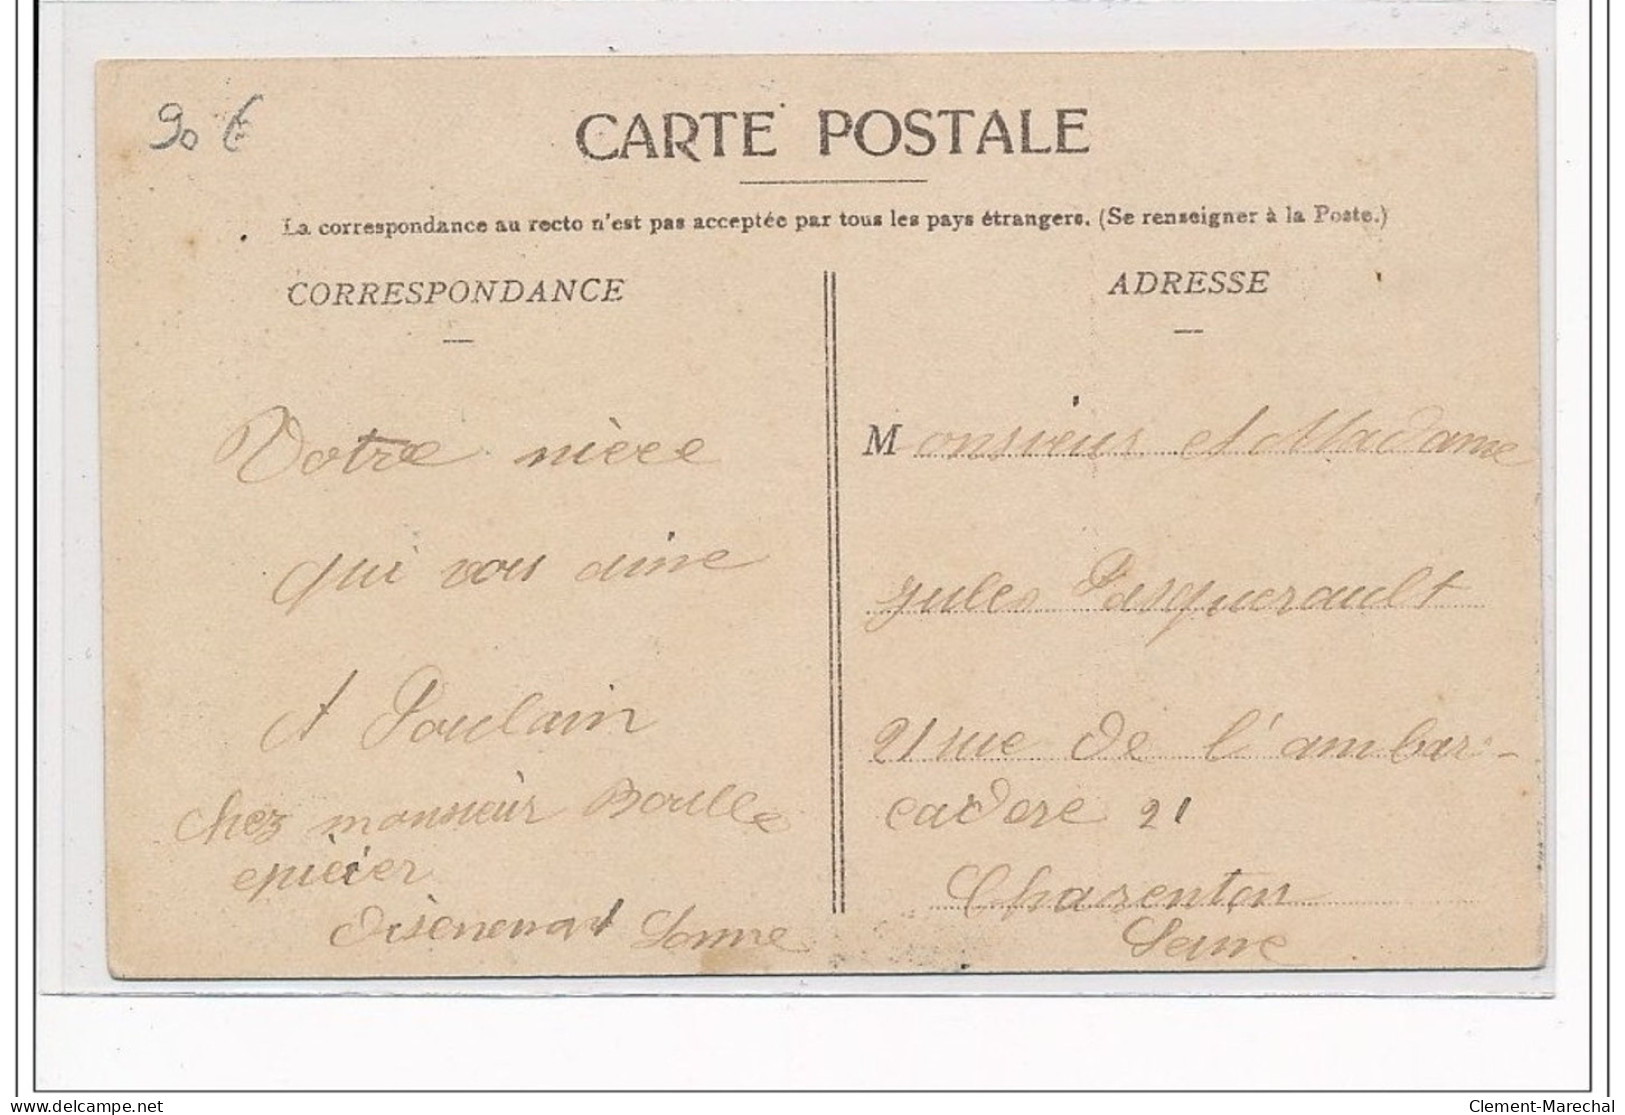 90 €
CARTE POSTALE
La correspondance au recto n'est pas acceptée par tous les pays étrangers. (Se renseigner à la Poste.)
CORRESPONDANCE
ADRESSE
Votre nièce
qui vous aime
A Poulain
chez monsieur Boulle
epicier
Somme
Monsieur et Madame
Jules Pasquerault
21 rue de l'ambar-
cadere 21
Charenton
Seine
delcampe.net
Clement-Marechal